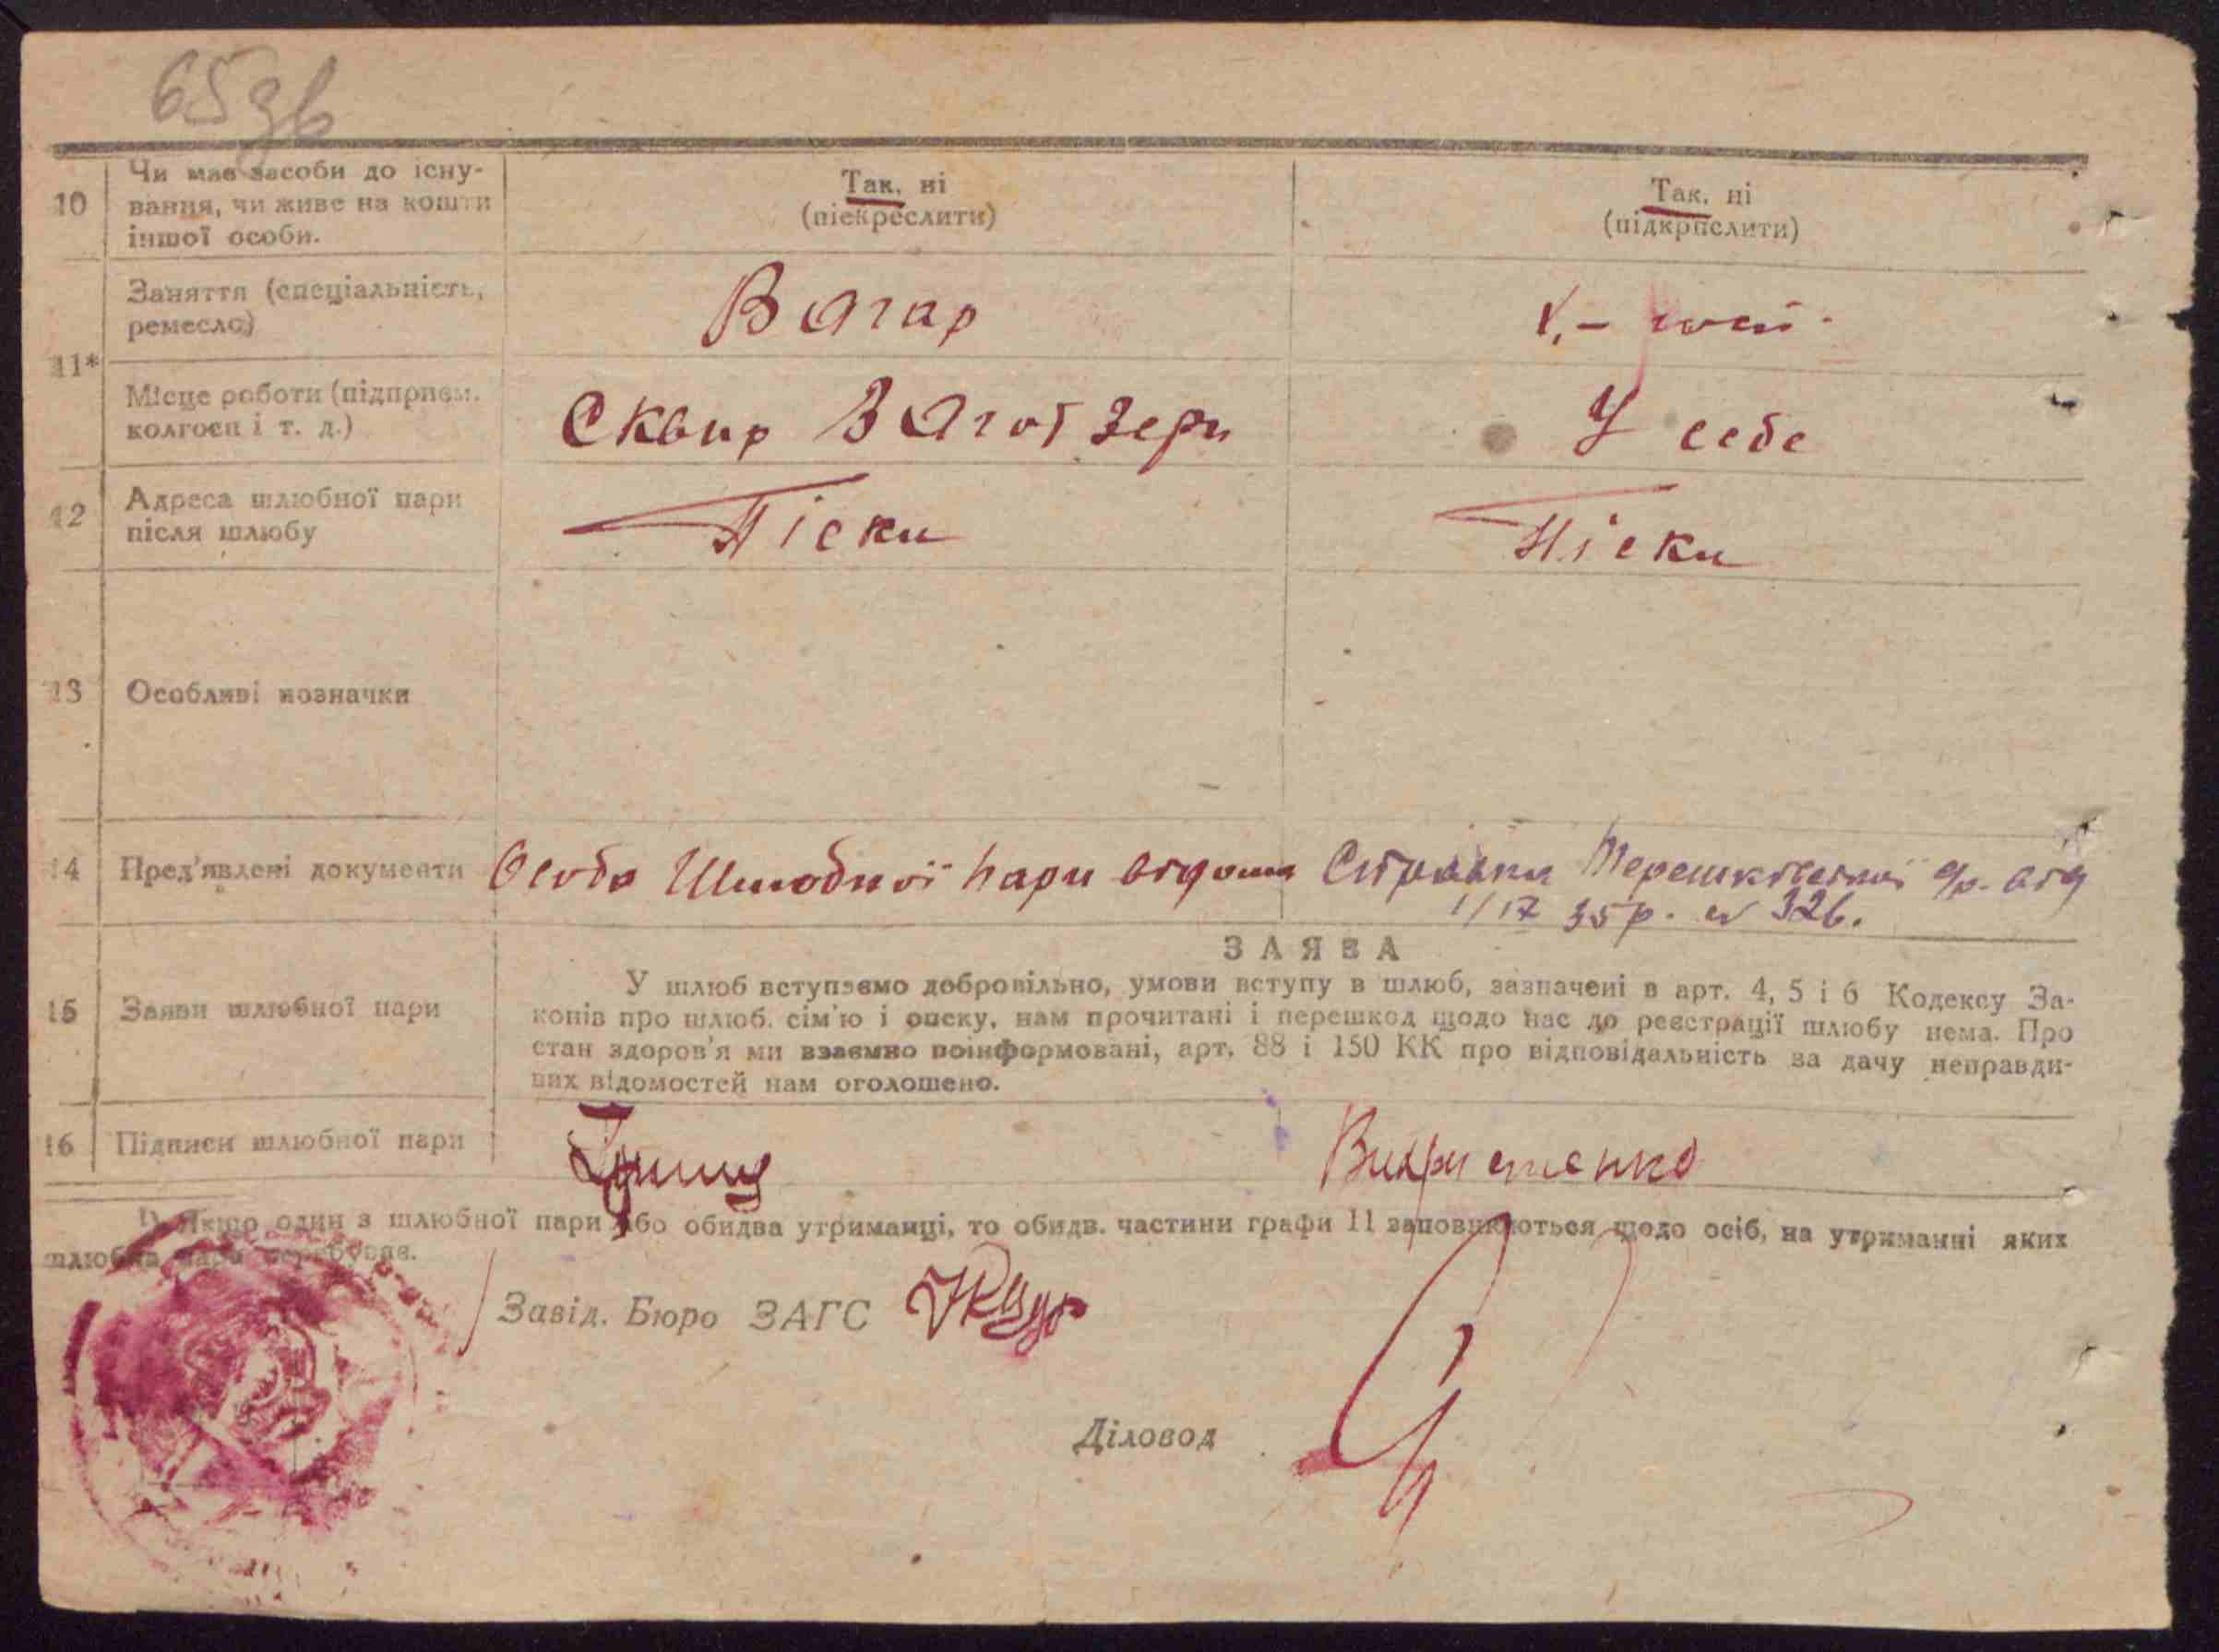 65зв
10
Чи має засоби до існу-
вання, чи живе на кошти
іншої особи.
Так, ні
(піекреслити)
Так, ні
(підкрпслити)
11*
Заняття (спеціальність,
ремесло)
Вагар
Місце роботи (підприєм.
колгосп і т. д.)
Сквир Заготзерн
У себе
12
Адреса шлюбної пари
після шлюбу
Піски
Піски
13
Особливі позначки
14
Пред'явлені документи
Особа Шлюбної пари відома
Справка Терешківської с/р. від
1/IV 35 р. № 326.
15
Заяви шлюбної пари
ЗАЯВА
У шлюб вступаємо добровільно, умови вступу в шлюб, зазначені в арт. 4, 5 і 6 Кодексу За-
конів про шлюб. сім'ю і опеку, нам прочитані і перешкод щодо нас до реєстрації шлюбу нема. Про
стан здоров'я ми взаємно поінформовані, арт. 88 і 150 КК про відповідальність за дачу неправди-
вих відомостей нам оголошено.
16
Підписи шлюбної пари
1) Якщо один з шлюбної пари або обидва утриманці, то обидв. частини графи 11 заповнюються щодо осіб, на утриманні яких
шлюбна пара перебуває.
Завід. Бюро ЗАГС
Діловод